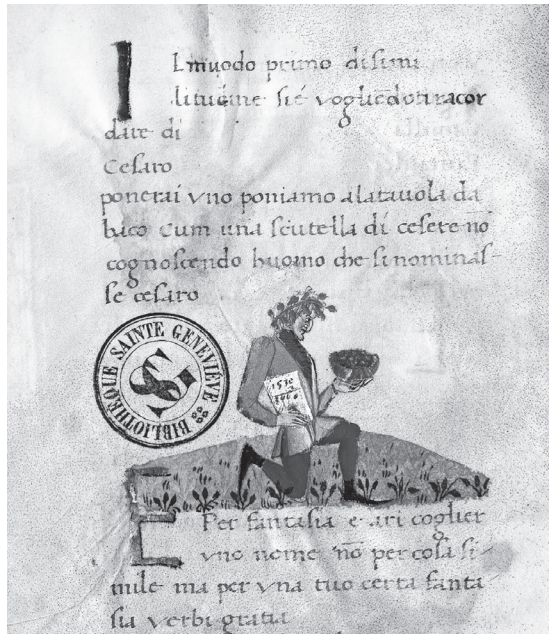 IL muodo primo disimi
litudine sie vogliedoti racor
dare di
Cesaro
ponerai vno poniamo alatauola da
baco Cum una scutella di cesere nō
cognoscendo huomo che si nominas-
se cesaro
BIBLIOTHÈQUE SAINTE GENEVIÈVE
SG
1530
E Per fantasia e ari coglier
vno nome nō per cosa si-
mile ma per vna tuo certa fanta
sia verbi gratia